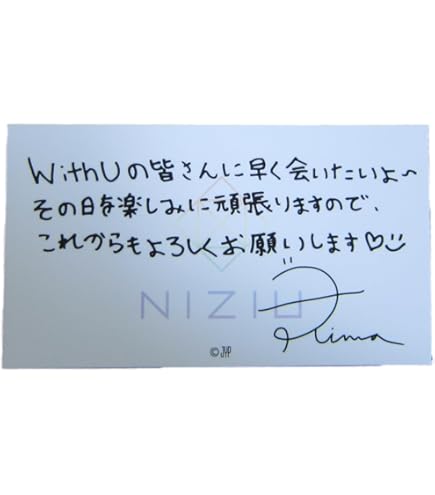 WithUの皆さんに早く会いたいよ~
その日を楽しみに頑張りますので、
これからもよろしくお願いします♡
NIZIU
Rima
© JYP